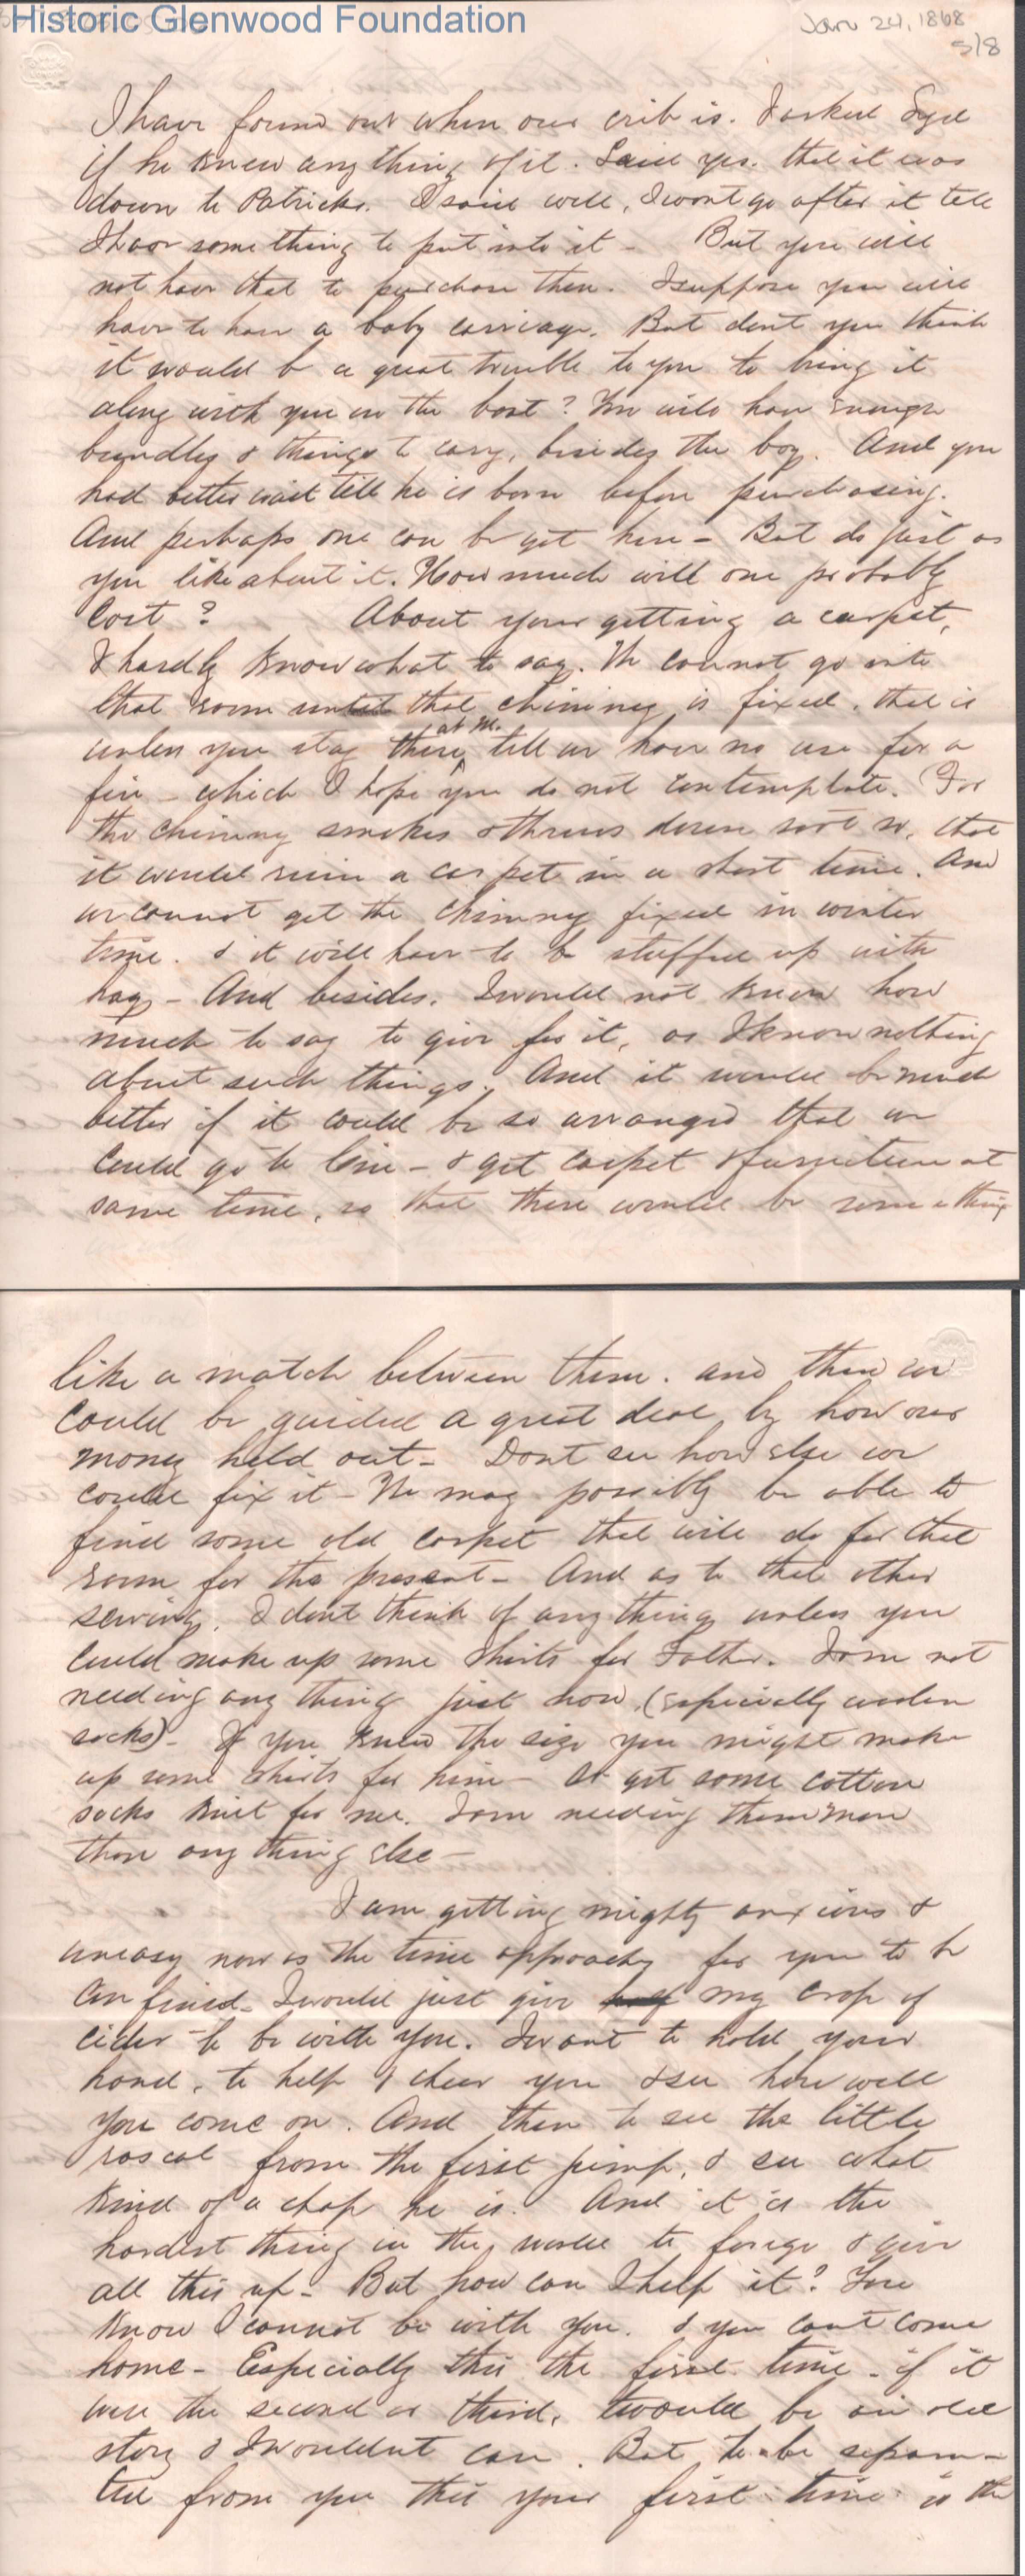 Historic Glenwood Foundation
Jan 24, 1868
5/8
I have found out when our crib is. I asked Syd
if he knew anything of it. Said yes. that it was
down to Patricks. I said well, I wont go after it till
I have something to put into it - But you will
not have that to purchase then. I suppose you will
have to have a baby carriage. But dont you think
it would be a great trouble to you to bring it
along with you on the boat? You will have enough
bundles & things to cary, besides the boy. And you
had better wait till he is born before purchasing.
And perhaps one can be got here - But do just as
you like about it. How much will one probably
cost? About your getting a carpet,
I hardly know what to say. We cannot go into
that room until that chimney is fixed, that is
unless you stay there, till we have no use for a
at M.
fire - which I hope you do not contemplate. For
the chimney smokes & throws down soot so, that
it would ruin a carpet in a short time. And
we cannot get the chimney fixed in winter
time. & it will have to be stuffed up with
hay - And besides. I would not know how
much to say to give for it, as I know nothing
about such things. And it would be much
better if it could be so arranged that we
could go to Cin - & get carpet & furniture at
same time, so that there would be something
like a match between them. and then we
could be guided a great deal by how our
money held out - Dont see how else we
could fix it - We may possibly be able to
find some old carpet that will do for that
room for the present - And as to that other
sewing, I dont think of any thing unless you
could make up some shirts for Father. I am not
needing any thing just now, (especially woolen
socks) - If you knew the size you might make
up some shirts for him - or get some cotton
socks knit for me. I am needing them more
than any thing else -
I am getting mighty anxious &
uneasy now as the time approachs for you to be
confined - I would just give half my crop of
cider to be with you. I want to hold your
hand, to help & cheer you & see how well
you come on. And then to see the little
rascal from the first jump, & see what
kind of a chap he is. And it is the
hardest thing in the world to forego & give
all this up - But how can I help it? You
know I cannot be with you. & you cant come
home - Especially this the first time - if it
were the second or third, twould be an old
story & I wouldnt care. But to be separa-
ted from you this your first time is the